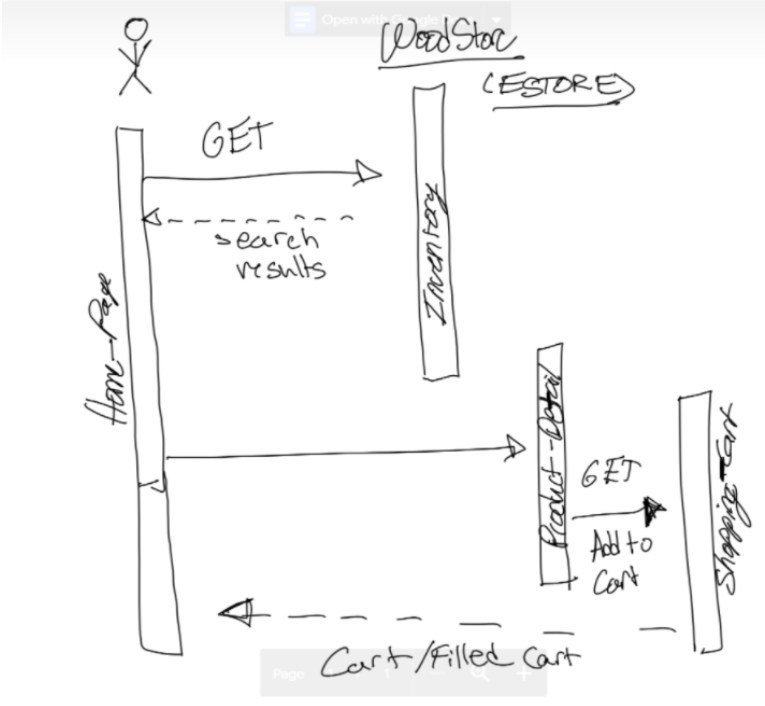 Open with Google
WoodStore
(ESTORE)
GET
search
results
Inventory
Home-Page
Product-Detail
GET
Add to
Cart
Shopping-Cart
Cart/Filled Cart
Page
1